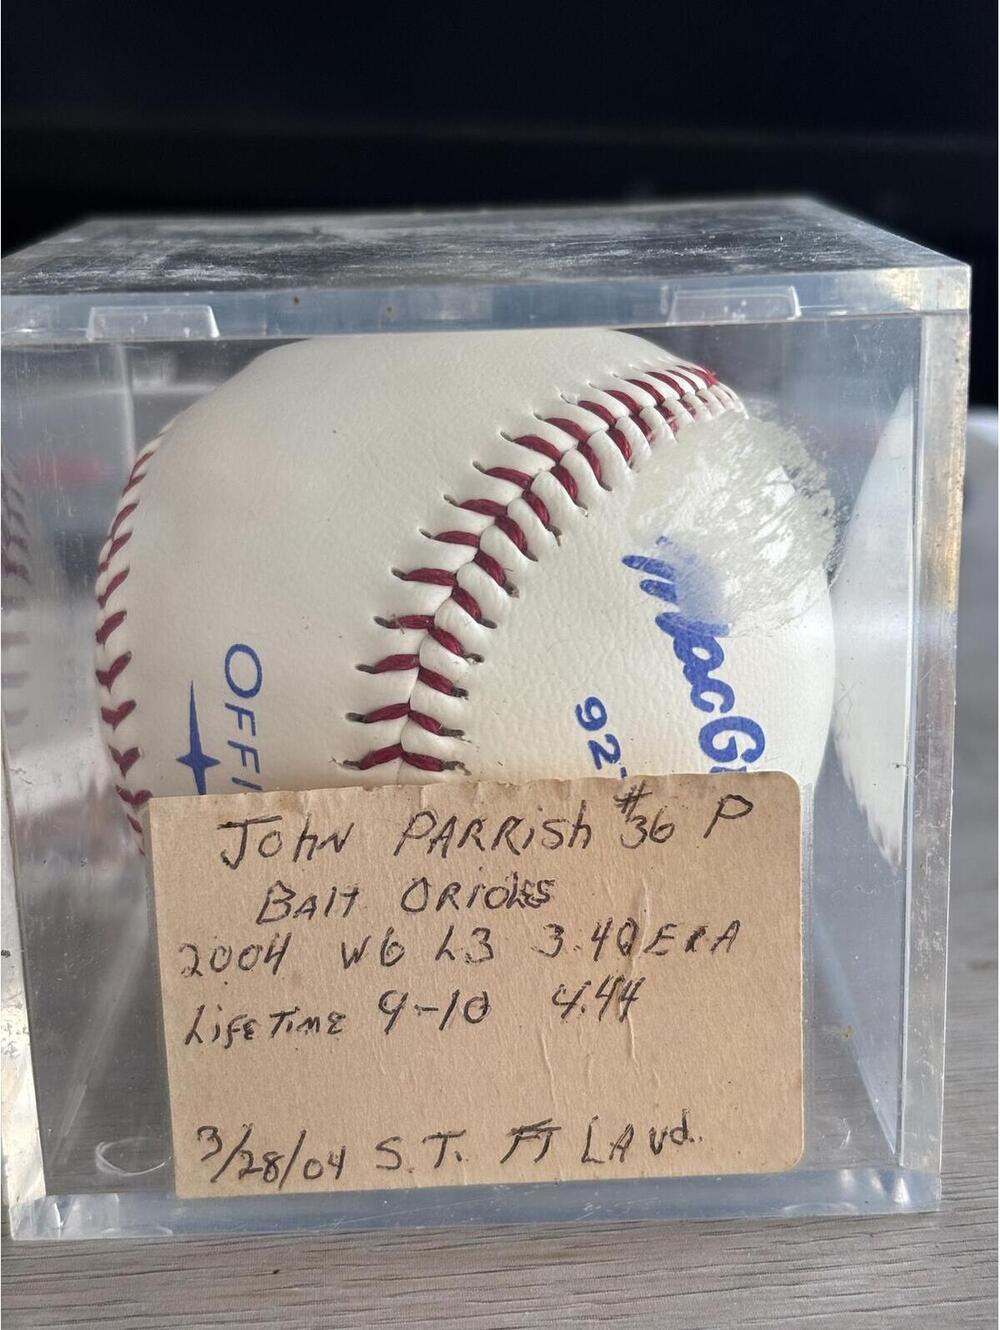 OFFI
MacG
92
John PARRish #36 P
BAlt ORIOles
2004 W6 L3 3.40 ERA
LifeTime 9-10 4.44
3/28/04 S.T. FT LAud.